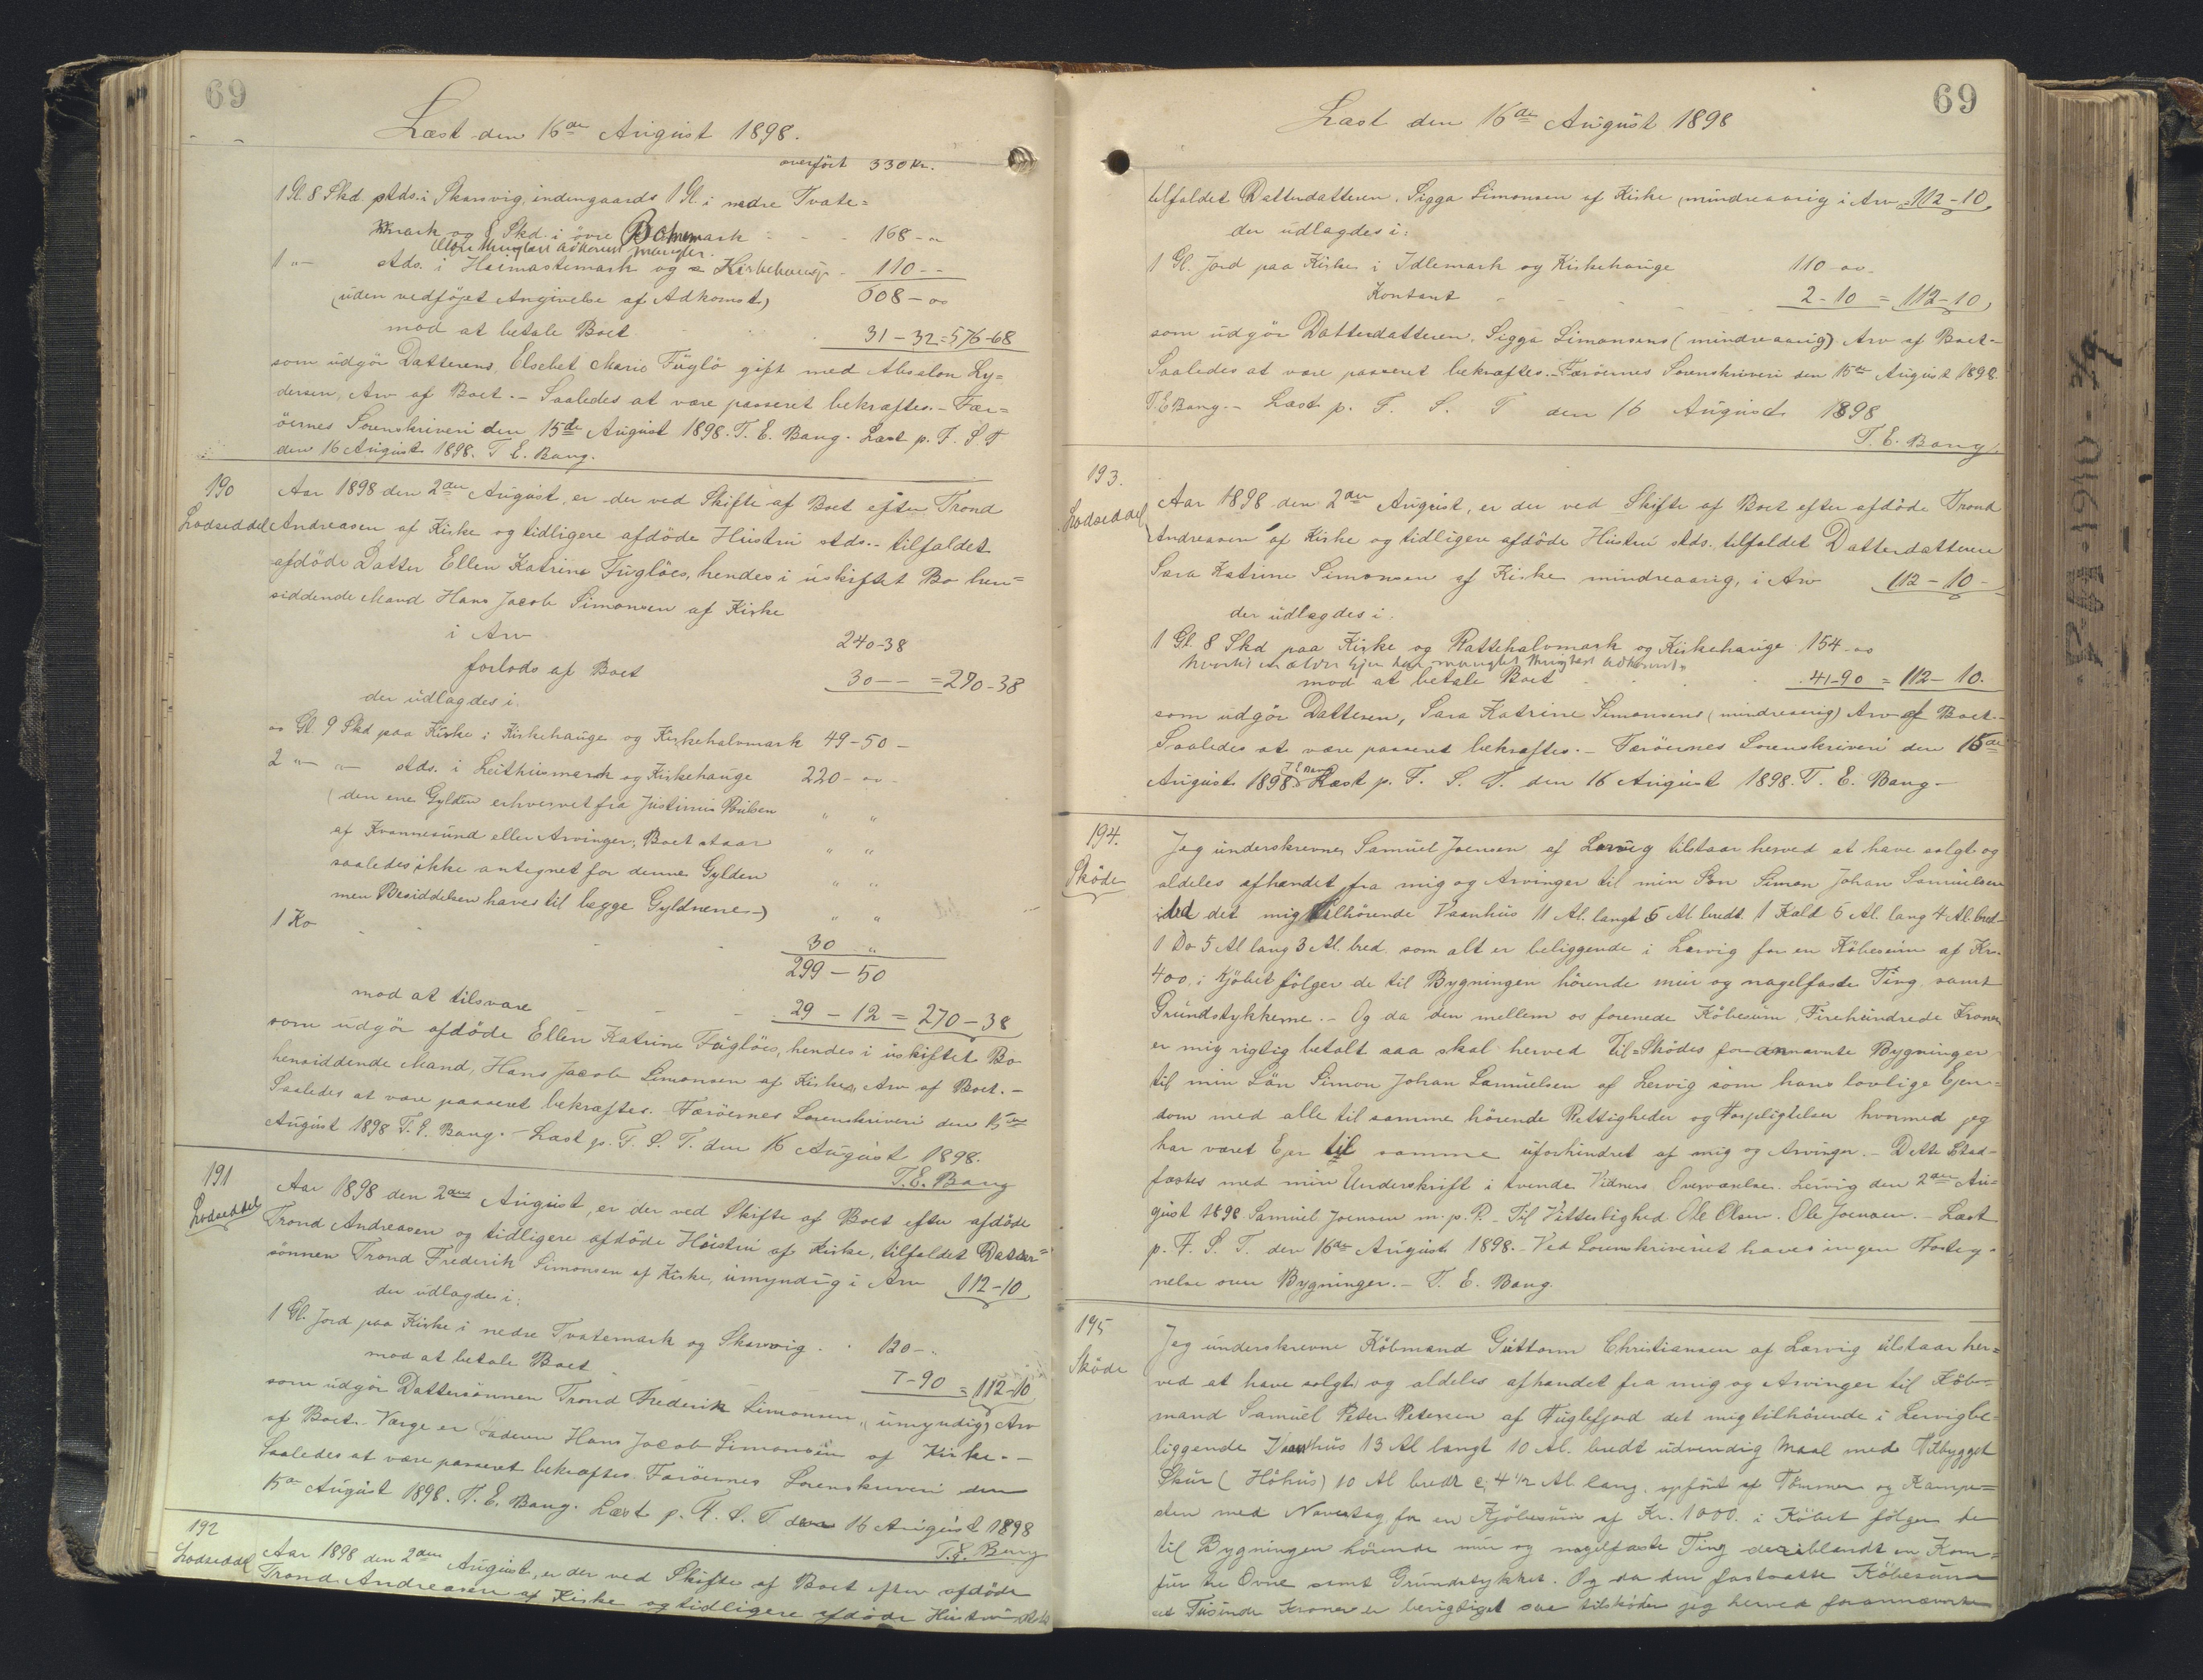 69
Læst den 16de August 1898.
overført 330 Kr.
1 Gl. 8 Skd. stds. i Skarsvig, indengaards 1 Gl. i nedre Tvate=
mark og 8 Skd. i övre mark - - - 168 - "
1 " - stds. i Heimastemark og Kirkehauge - 110 - -
(uden vedföjet Angivelse af Adkomst,) 608 - oo
mod at betale Boet 31 - 32 = 576-68
som udgör Datterens, Elsebet Marie Fuglö gift med Abselon Ly=
dersen, Arv af Boet. - Saaledes at være passeret bekræftes. - Fær=
öernes Sorenskriveri den 15de August 1898. T. E. Bang. Læst p. F. S. T
den 16 August 1898. T. E. Bang.
190
Lodseddel
Aar 1898 den 2den August, er der ved Skifte af Boet efter Trond
Andreasen af Kirke og tidligere afdöde Hustru stds. - tilfaldet
afdöde Datter Ellen Katrine Fuglöes, hendes i uskiftet Bo hen=
siddende Mand Hans Jacob Simonsen af Kirke
i Arv 240-38
forlods af Boet 30 - - = 270-38
der udlagdes i.
oo Gl. 9 Skd paa Kirke i Kirkehauge og Kirkehalvmark 49-50 -
2 " - " - stds. i Leithusmark og Kirkehauge 220 - oo -
(den ene Gylden erhvervet fra Justinus Poulsen " "
af Kvannesund eller Arvinger, Boet staar " "
saaledes ikke antegnet for denne Gylden " "
men Besiddelsen haves til begge Gyldnene -) " "
1 Ko - - - 30 "
299 - 50
mod at tilsvare - - - 29 - 12 = 270 - 38
som udgör afdöde Ellen Katrine Fuglöes, hendes i uskiftet Bo
hensiddende Mand, Hans Jacob Simonsen af Kirkes, Arv af Boet. -
Saaledes at være passeret bekræftes. - Færöernes Sorenskriveri den 15de
August 1898 T. E. Bang. - Læst p. F. S. T. den 16 August 1898.
T. E. Bang
191
Lodseddel
Aar 1898 den 2den August, er der ved Skifte af Boet efter afdöde
Trond Andreasen og tidligere afdöde Hustru af Kirke, tilfaldet Datter=
sönnen Trond Frederik Simonsen af Kirke, umyndig i Arv 112-10
der udlagdes i:
1 Gl. Jord paa Kirke i nedre Tvatemark og Skarsvig . . 120 - "
mod at betale Boet 7-90 = 112-10
som udgör Dattersönnen Trond Frederik Simonsen, (umyndig) Arv
af Boet. Værge er Faderen Hans Jacob Simonsen af Kirke. -
Saaledes at være passeret bekræftes. Færöernes Sorenskriveri den
15de August 1898. T. E. Bang. Læst p. F. S. T den 16 August 1898
T. E. Bang
192
Lodseddel
Aar 1898 den 2den August, er der ved Skifte af Boet efter afdöde
Trond Andreasen af Kirke og tidligere afdöde Hustru stds
69
Læst den 16de August 1898
tilfaldet Datterdatteren, Sigga Simonsen af Kirke (mindreaarig i Arv = 112-10
der udlagdes i:
1 Gl. Jord paa Kirke i Idlemark og Kirkehauge 110-oo-
Kontant 2-10 = 112-10
som udgör Datterdatteren, Sigga Simonsens (mindreaarig) Arv af Boet-
Saaledes at være passeret bekræftes. - Færöernes Sorenskriveri den 15de August 1898.
T. E Bang. - Læst p. F. S. T den 16 August 1898
T. E. Bang.
193.
Lodseddel
Aar 1898 den 2den August, er der ved Skifte af Boet efter afdöde Trond
Andreasen af Kirke og tidligere afdöde Hustru stds. tilfaldet Datterdatteren
Sara Katrine Simonsen af Kirke mindreaarig, i Arv 112-10-
der udlagdes i.
1 Gl. 8 Skd paa Kirke og Rattehalvmark og Kirkehauge 154-oo
mod at betale Boet . . . 41-90 = 112-10.
som udgör Datteren, Sara Katrine Simonsens (mindreaarig) Arv af Boet. -
Saaledes at være passeret bekræftes. - Færöernes Sorenskriveri den 15de
August 1898. T E Bang Læst p. F. S. T. den 16 August 1898. T. E. Bang -
194.
Sköde
Jeg underskrevne, Samuel Joensen af Lervig tilstaar herved at have solgt og
aldeles afhændet fra mig og Arvinger til min Sön Simon Johan Samuelsen
ibd det mig tilhörende Vaanhus 11 Al. langt 5 Al. bredt 1 Kald 5 Al. lang 4 Al. bred-
1 Do 5 Al lang 3 Al. bred som alt er beliggende i Lervig for en Köbesum af Kr.
400, i Kjöbet fölger de til Bygningen hörende mur og nagelfaste Ting samt
Grundstykkerne. - Og da den mellem os forenede Köbesum, Firehundrede Kroner
er mig rigtig betalt saa skal herved Til=Sködes forannævnte Bygninger
til min Sön Simon Johan Samuelsen af Lervig som hans lovlige Ejen=
dom med alle til samme hörende Rettigheder og Forpligtelser hvormed jeg
har været Ejer til samme uforhindret af mig og Arvinger. - Dette Stad-
fæstes med min Underskrift i tvende Vidners Overværelse. Lervig den 2den Au=
gust 1898. Samuel Joensen m. p. P. - Til Vitterlighed Ole Olsen. Ole Joensen. - Læst
p. F. S. T. den 16de August 1898. - Ved Sorenskriveriet haves ingen Hosteg-
nelse over Bygninger. - T. E. Bang.
195
Sköde
Jeg underskrevne Köbmand Guttorm Christiansen af Lervig tilstaar her=
ved at have solgt og aldeles afhændet fra mig og Arvinger til Köb-
mand Samuel Peter Petersen af Fuglefjord det mig tilhörende i Lervig be-
liggende Vaanhus 13 Al langt 10 Al. bredt udvendig Maal med Tilbygget
Skur (Höhus) 10 Al bredt c. 4 1/2 Al. lang. opfört af Tömmer og Kampe=
sten med Navertag for en Kjöbesum af Kr. 1000. i Köbet fölger de
til Bygningen hörende mur og nagelfaste Ting deriblandt en Kom=
fur tre Ovne samt Grundstykket. Og da den fastsatte Köbesum
et Tusinde Kroner er berigtiget saa tilsköder jeg herved forannævnte